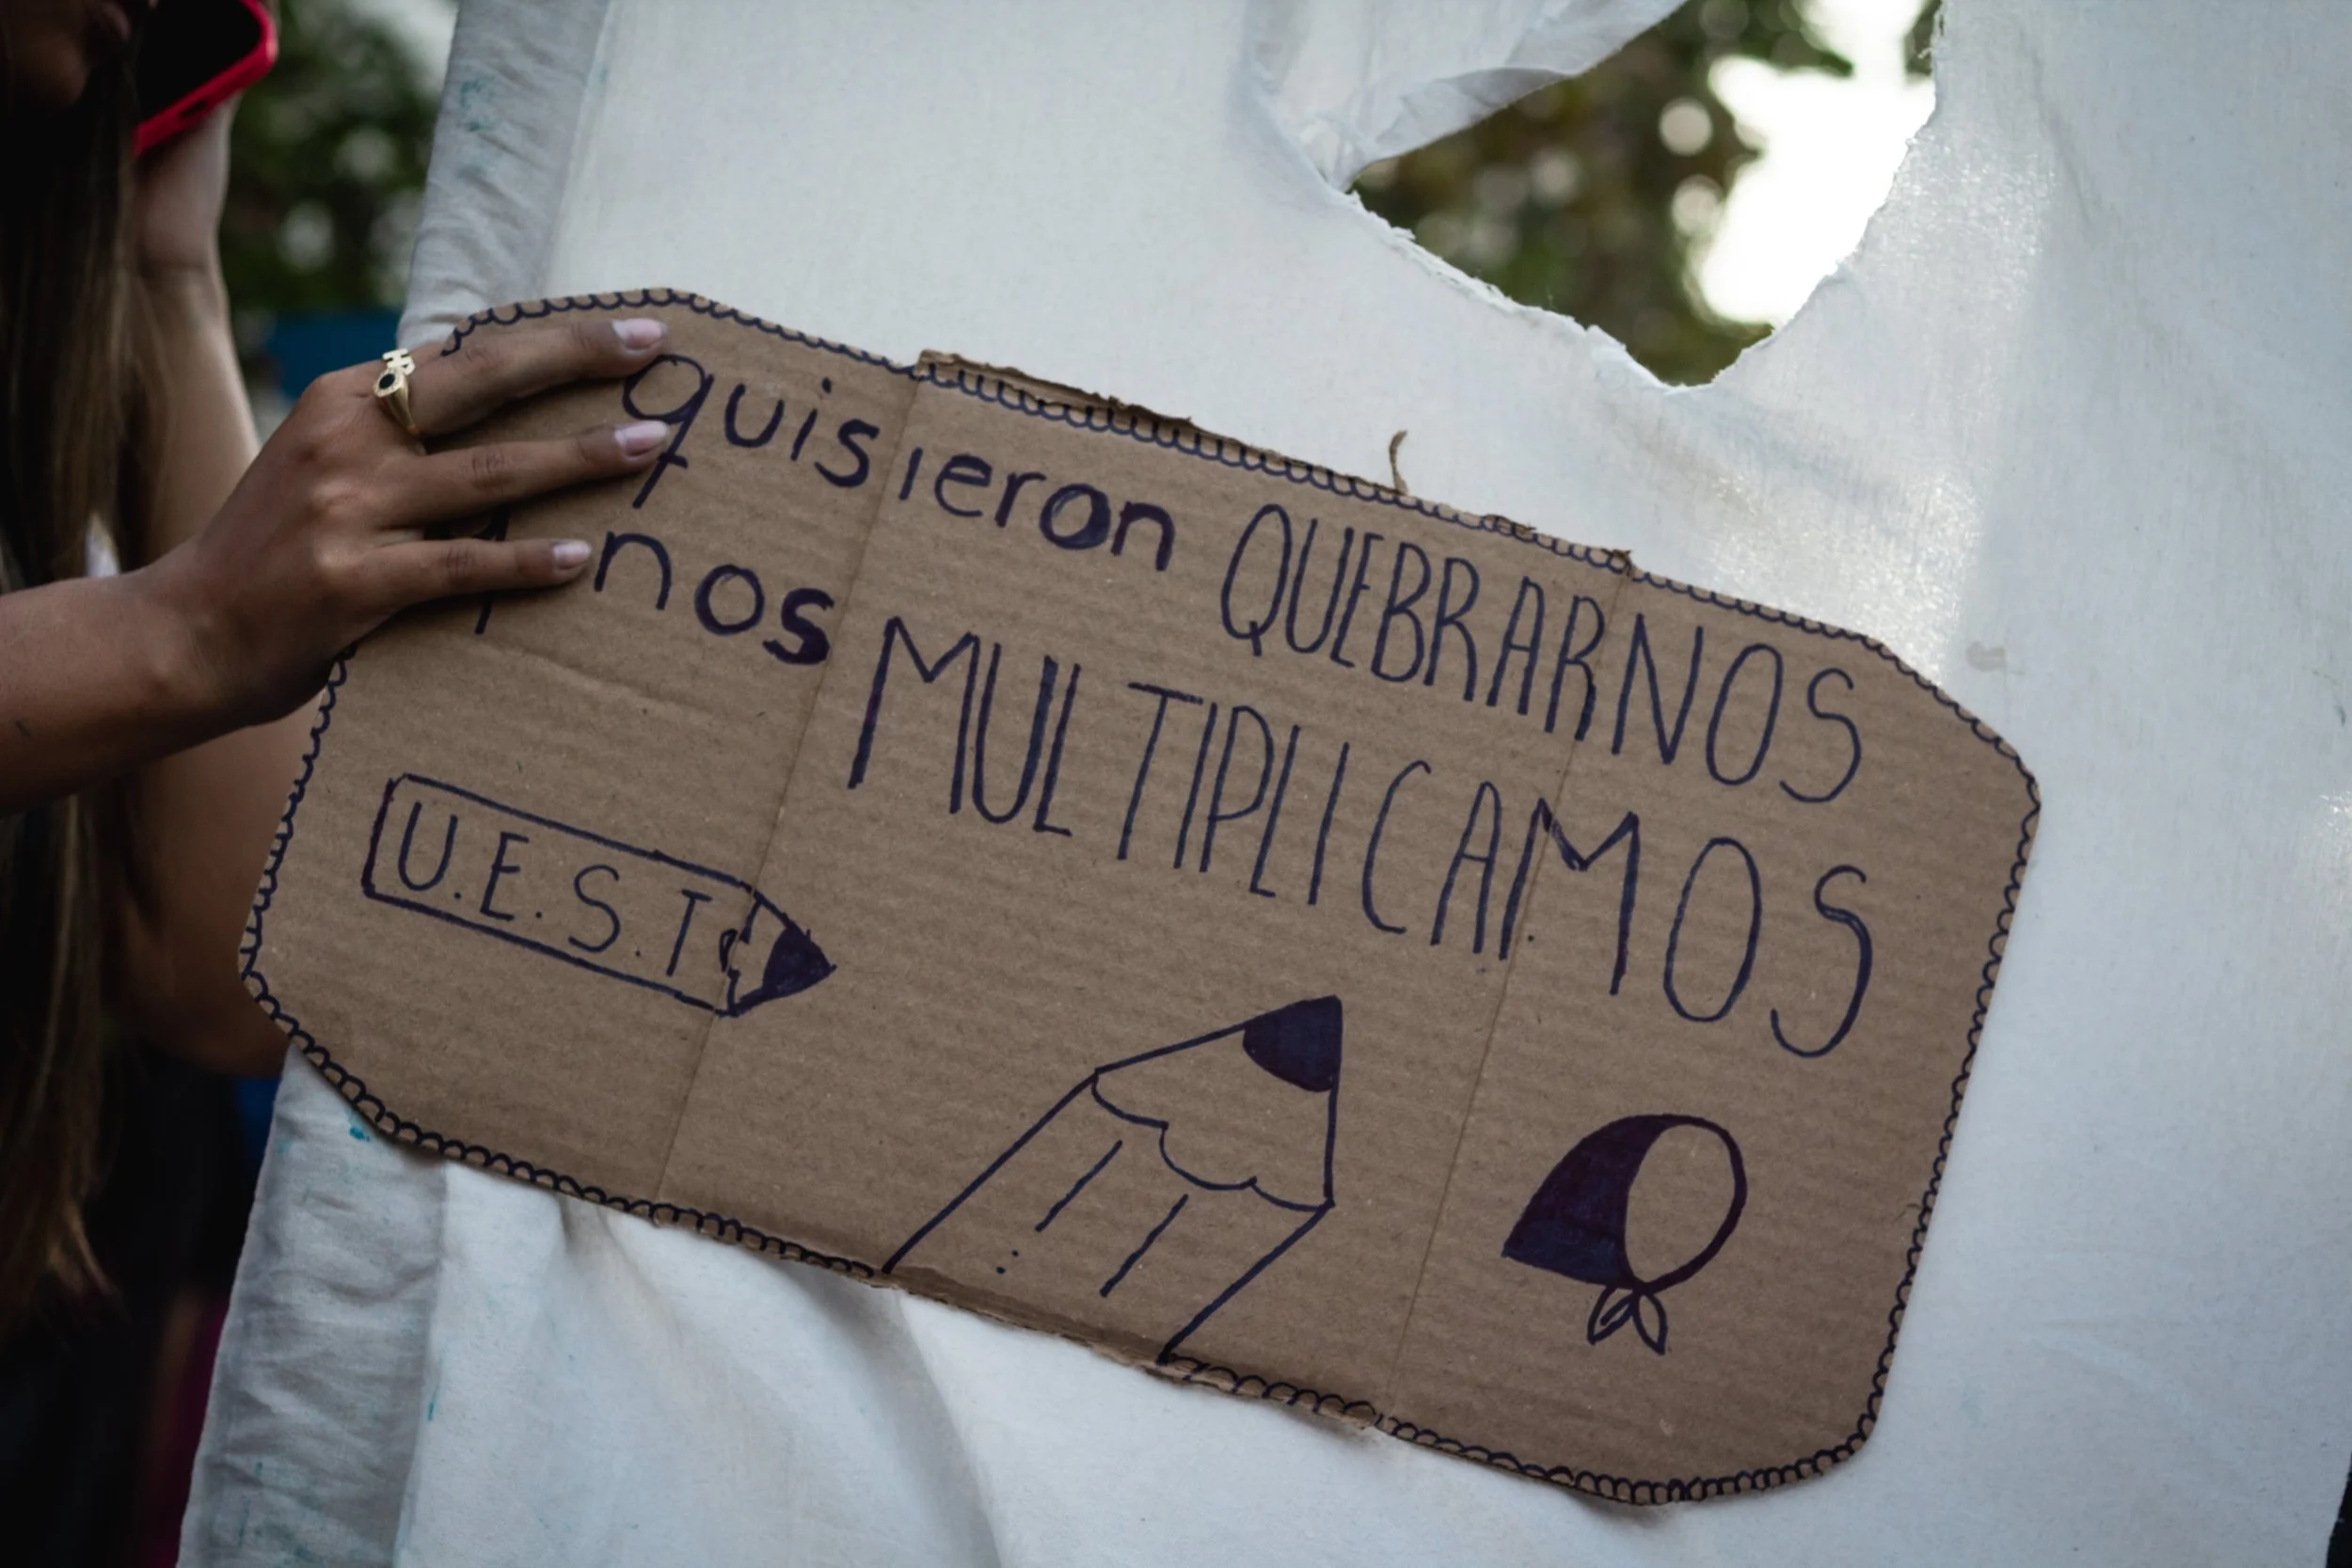 quisieron QUEBRARNOS
nos MULTIPLICAMOS
U.E.S.T